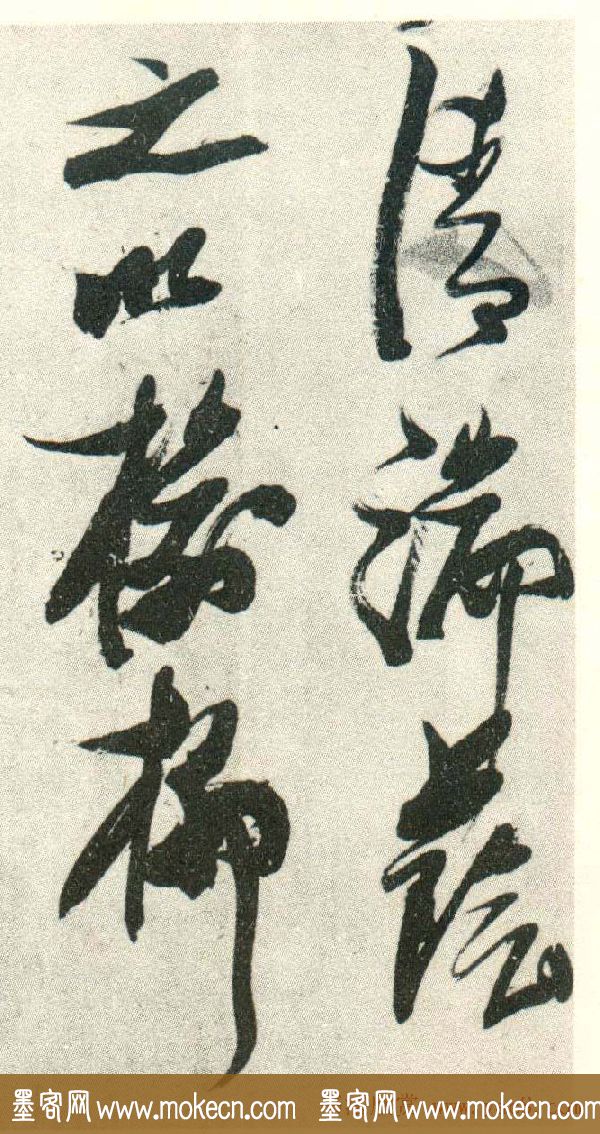 清湍蔭
之以樹柳
墨客网 www.mokecn.com 墨客网 www.mokecn.com